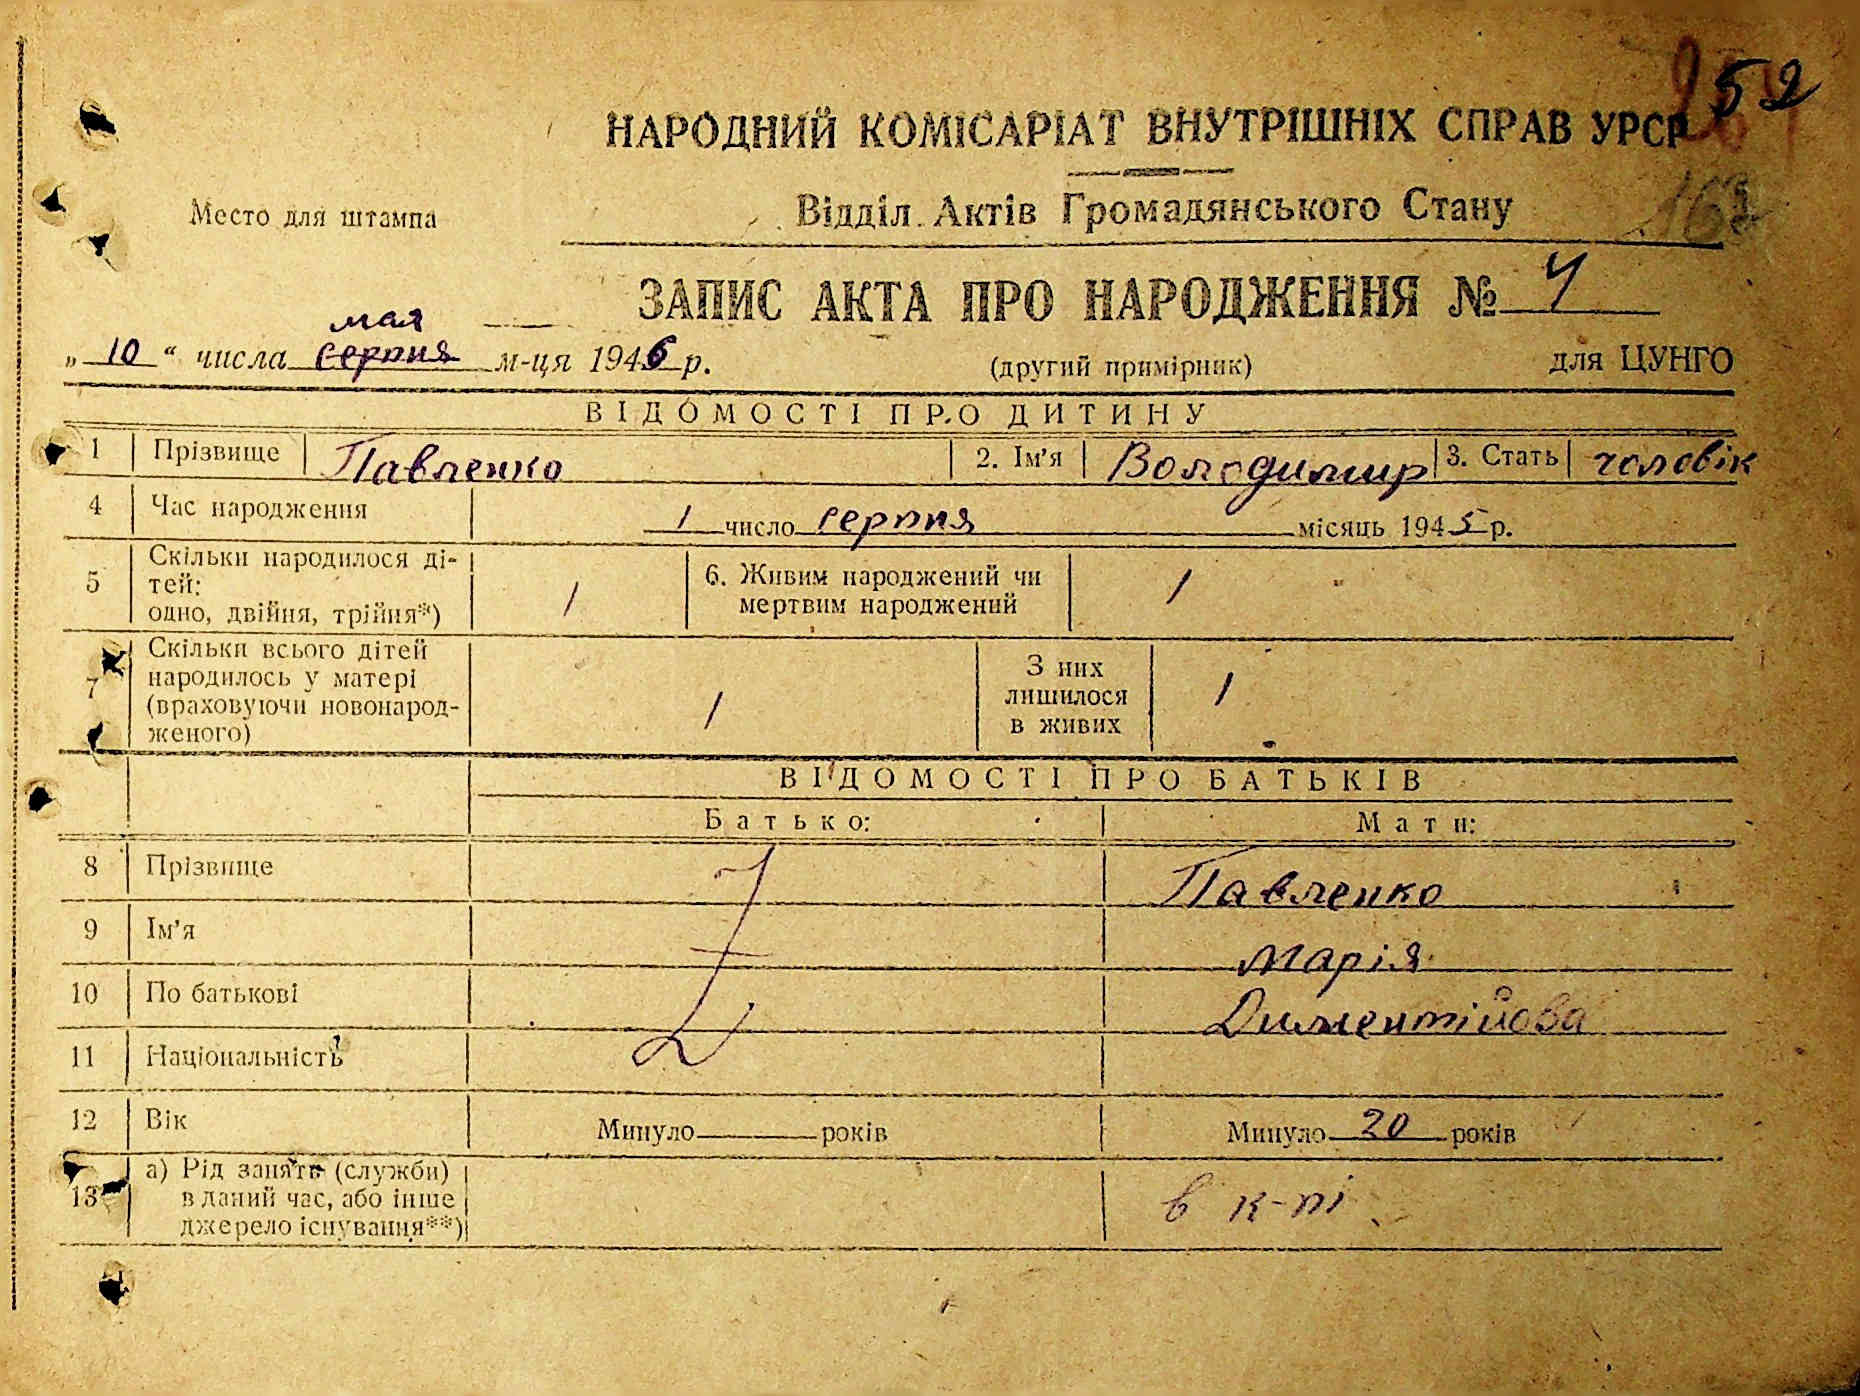 52
НАРОДНИЙ КОМІСАРІАТ ВНУТРІШНІХ СПРАВ УРСР
Место для штампа
Відділ Актів Громадянського Стану
ЗАПИС АКТА ПРО НАРОДЖЕННЯ № 4
мая
„ 10 “ числа серпня м-ця 1946 р.
(другий примірник)
для ЦУНГО
ВІДОМОСТІ ПРО ДИТИНУ
1 Прізвище Павленко 2. Ім'я Володимир 3. Стать чоловік
4 Час народження 1 число серпня місяць 1945 р.
5 Скільки народилося ді-
тей:
одно, двійня, трійня*) 1
6. Живим народжений чи
мертвим народжений 1
7 Скільки всього дітей
народилось у матері
(враховуючи новонарод-
женого) 1
З них
лишилося
в живих 1
ВІДОМОСТІ ПРО БАТЬКІВ
Батько: Мати:
8 Прізвище Павленко
9 Ім'я Марія
10 По батькові Диментійова
11 Національність
12 Вік Минуло років Минуло 20 років
13 а) Рід занять (служби)
в даний час, або інше
джерело існування**)
в к-пі